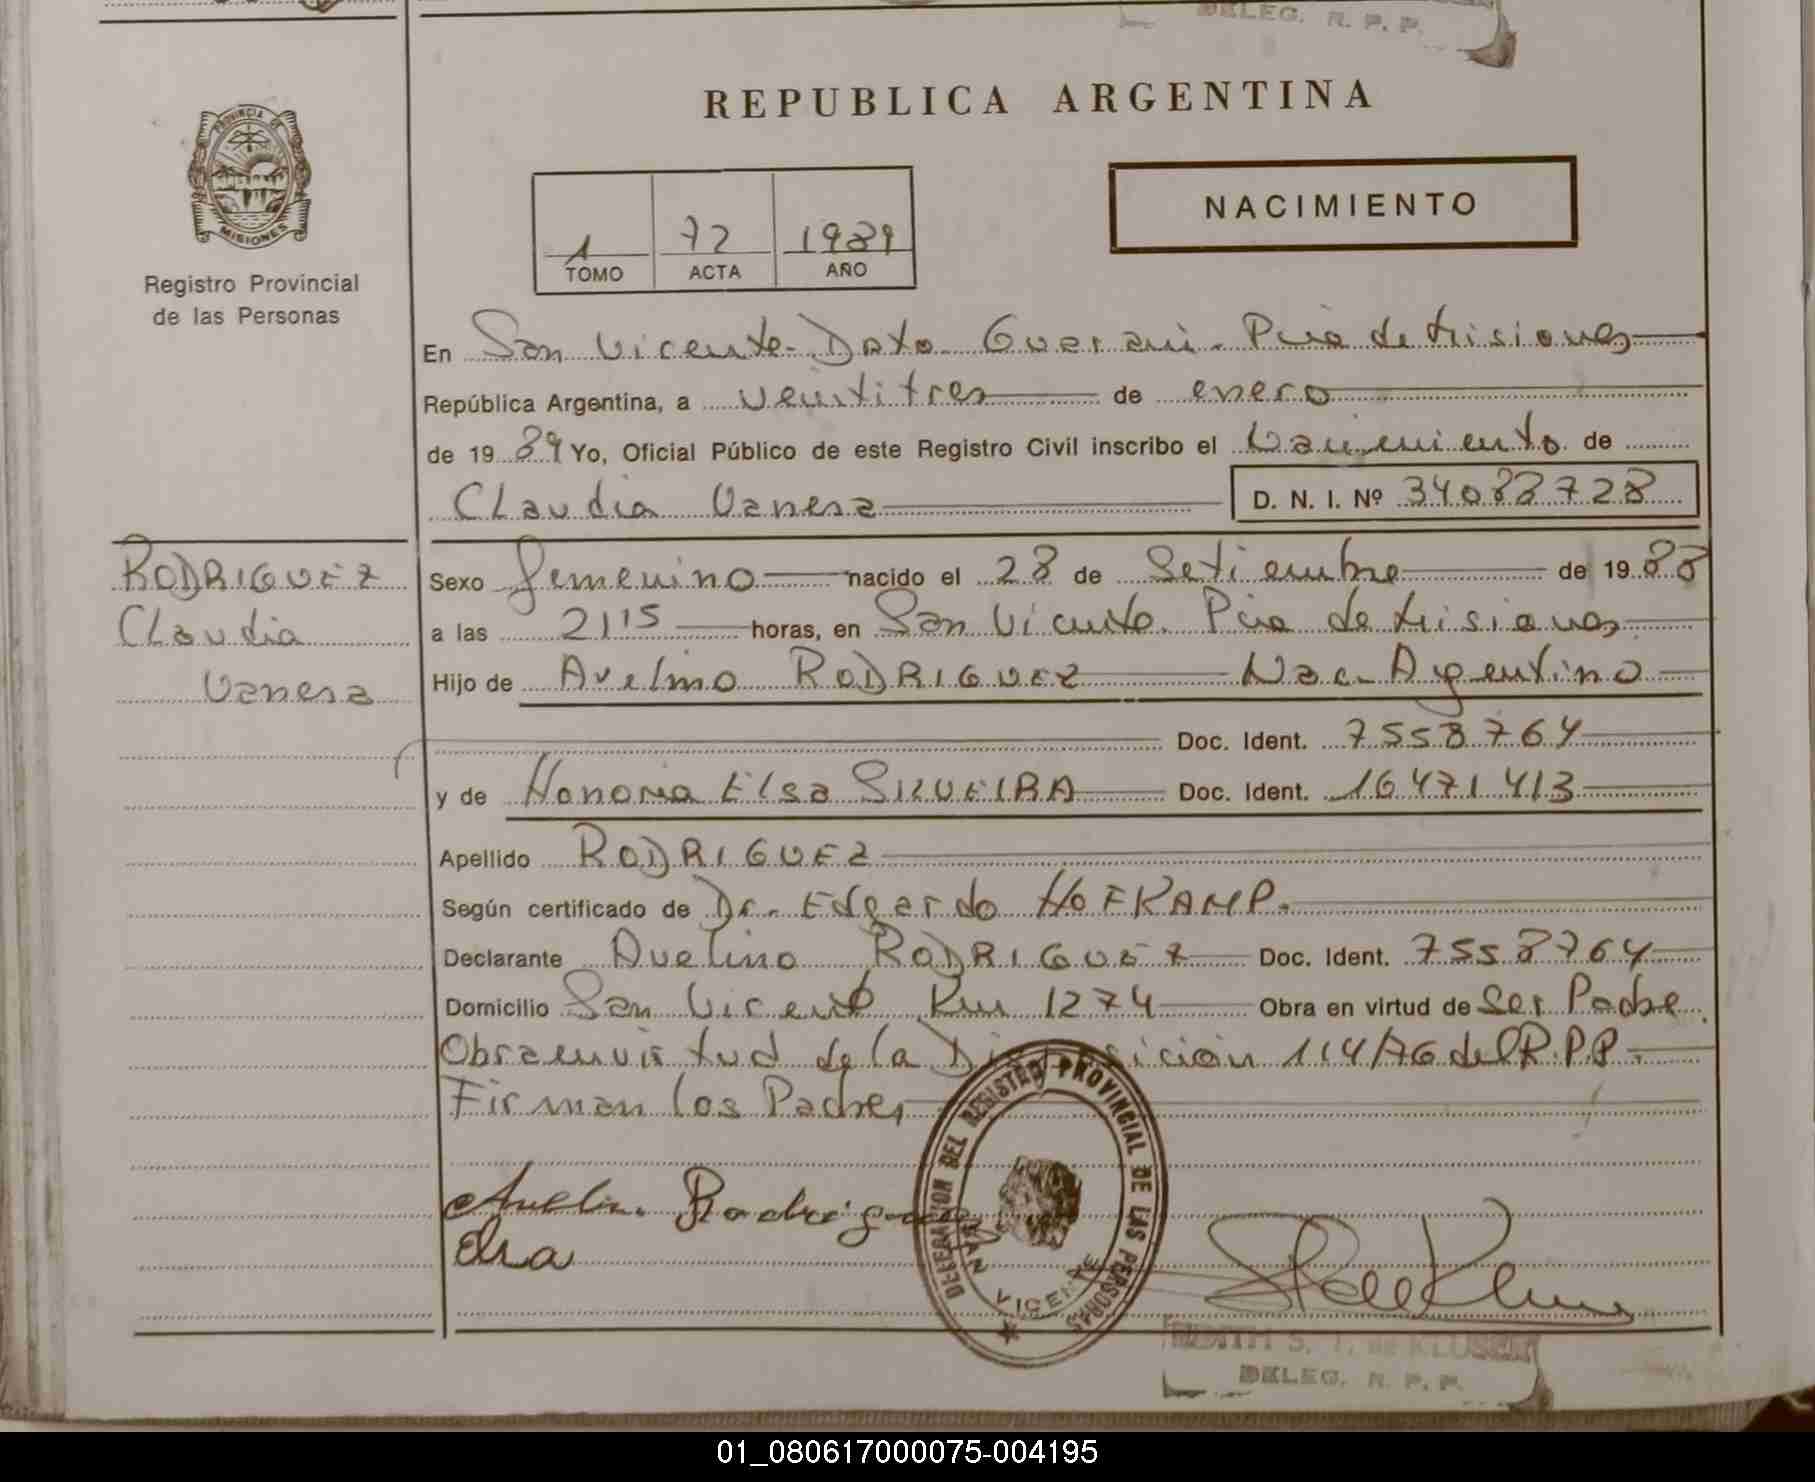 DELEG. R. P. P.
REPUBLICA ARGENTINA
PROVINCIA DE
MISIONES
Registro Provincial
de las Personas
1 72 1989
TOMO ACTA AÑO
NACIMIENTO
En San Vicente-Dpto Guarani- Pcia de Misiones
República Argentina, a veintitres de enero
de 1989 Yo, Oficial Público de este Registro Civil inscribo el Nacimiento de
Claudia Vanesa D. N. I. Nº 34088728
RODRIGUEZ
Claudia
Vanesa
Sexo femenino nacido el 28 de Setiembre de 1988
a las 2115 horas, en San Vicente. Pcia de Misiones
Hijo de Avelino RODRIGUEZ Nac. Argentino
Doc. Ident. 7558764
y de Honoria Elsa SILVEIRA Doc. Ident. 16471413
Apellido RODRIGUEZ
Según certificado de Dr. Edgardo HOFKAMP.
Declarante Avelino RODRIGUEZ Doc. Ident. 7558764
Domicilio San Vicente Km 1274 Obra en virtud de Ser Padre.
Obra en virtud de la Disposición 114/76 del R.P.P.
Firman los Padres
DELEGACION DEL REGISTRO PROVINCIAL DE LAS PERSONAS
SAN VICENTE
Avelin. Rodrigue
EDITH S. T. de KLUSEN
DELEG. R. P. P.
01_080617000075-004195